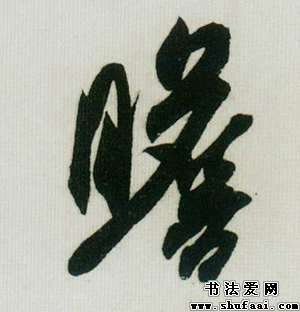 瞻
书法爱网
www.shufaai.com